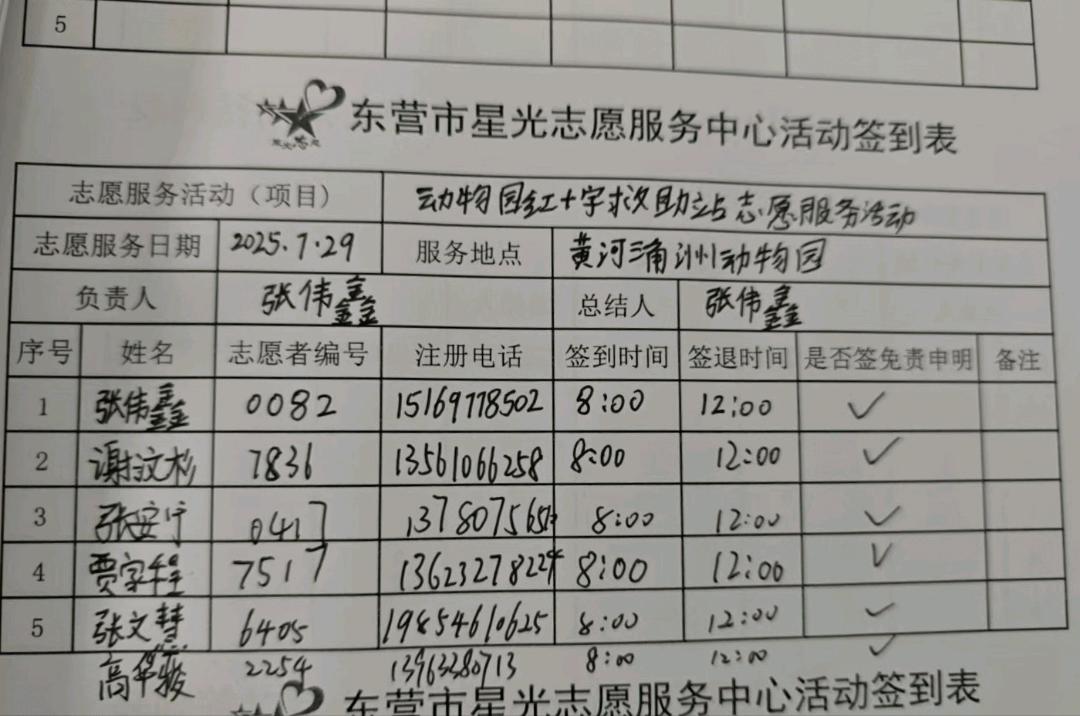 5
东营市星光志愿服务中心活动签到表
志愿服务活动（项目） 动物园红十字救助站志愿服务活动
志愿服务日期 2025.7.29 服务地点 黄河三角洲动物园
负责人 张伟鑫 总结人 张伟鑫
序号 姓名 志愿者编号 注册电话 签到时间 签退时间 是否签免责申明 备注
1 张伟鑫 0082 15169778502 8:00 12:00 ✓
2 谢汶杉 7836 13561066258 8:00 12:00 ✓
3 张安宁 0417 8:00 12:00 ✓
4 贾家程 7517 13623278224 8:00 12:00 ✓
5 张文慧 6405 19854610625 8:00 12:00 ✓
高华骏 2254 13963280713 8:00 12:00 ✓
东营市星光志愿服务中心活动签到表